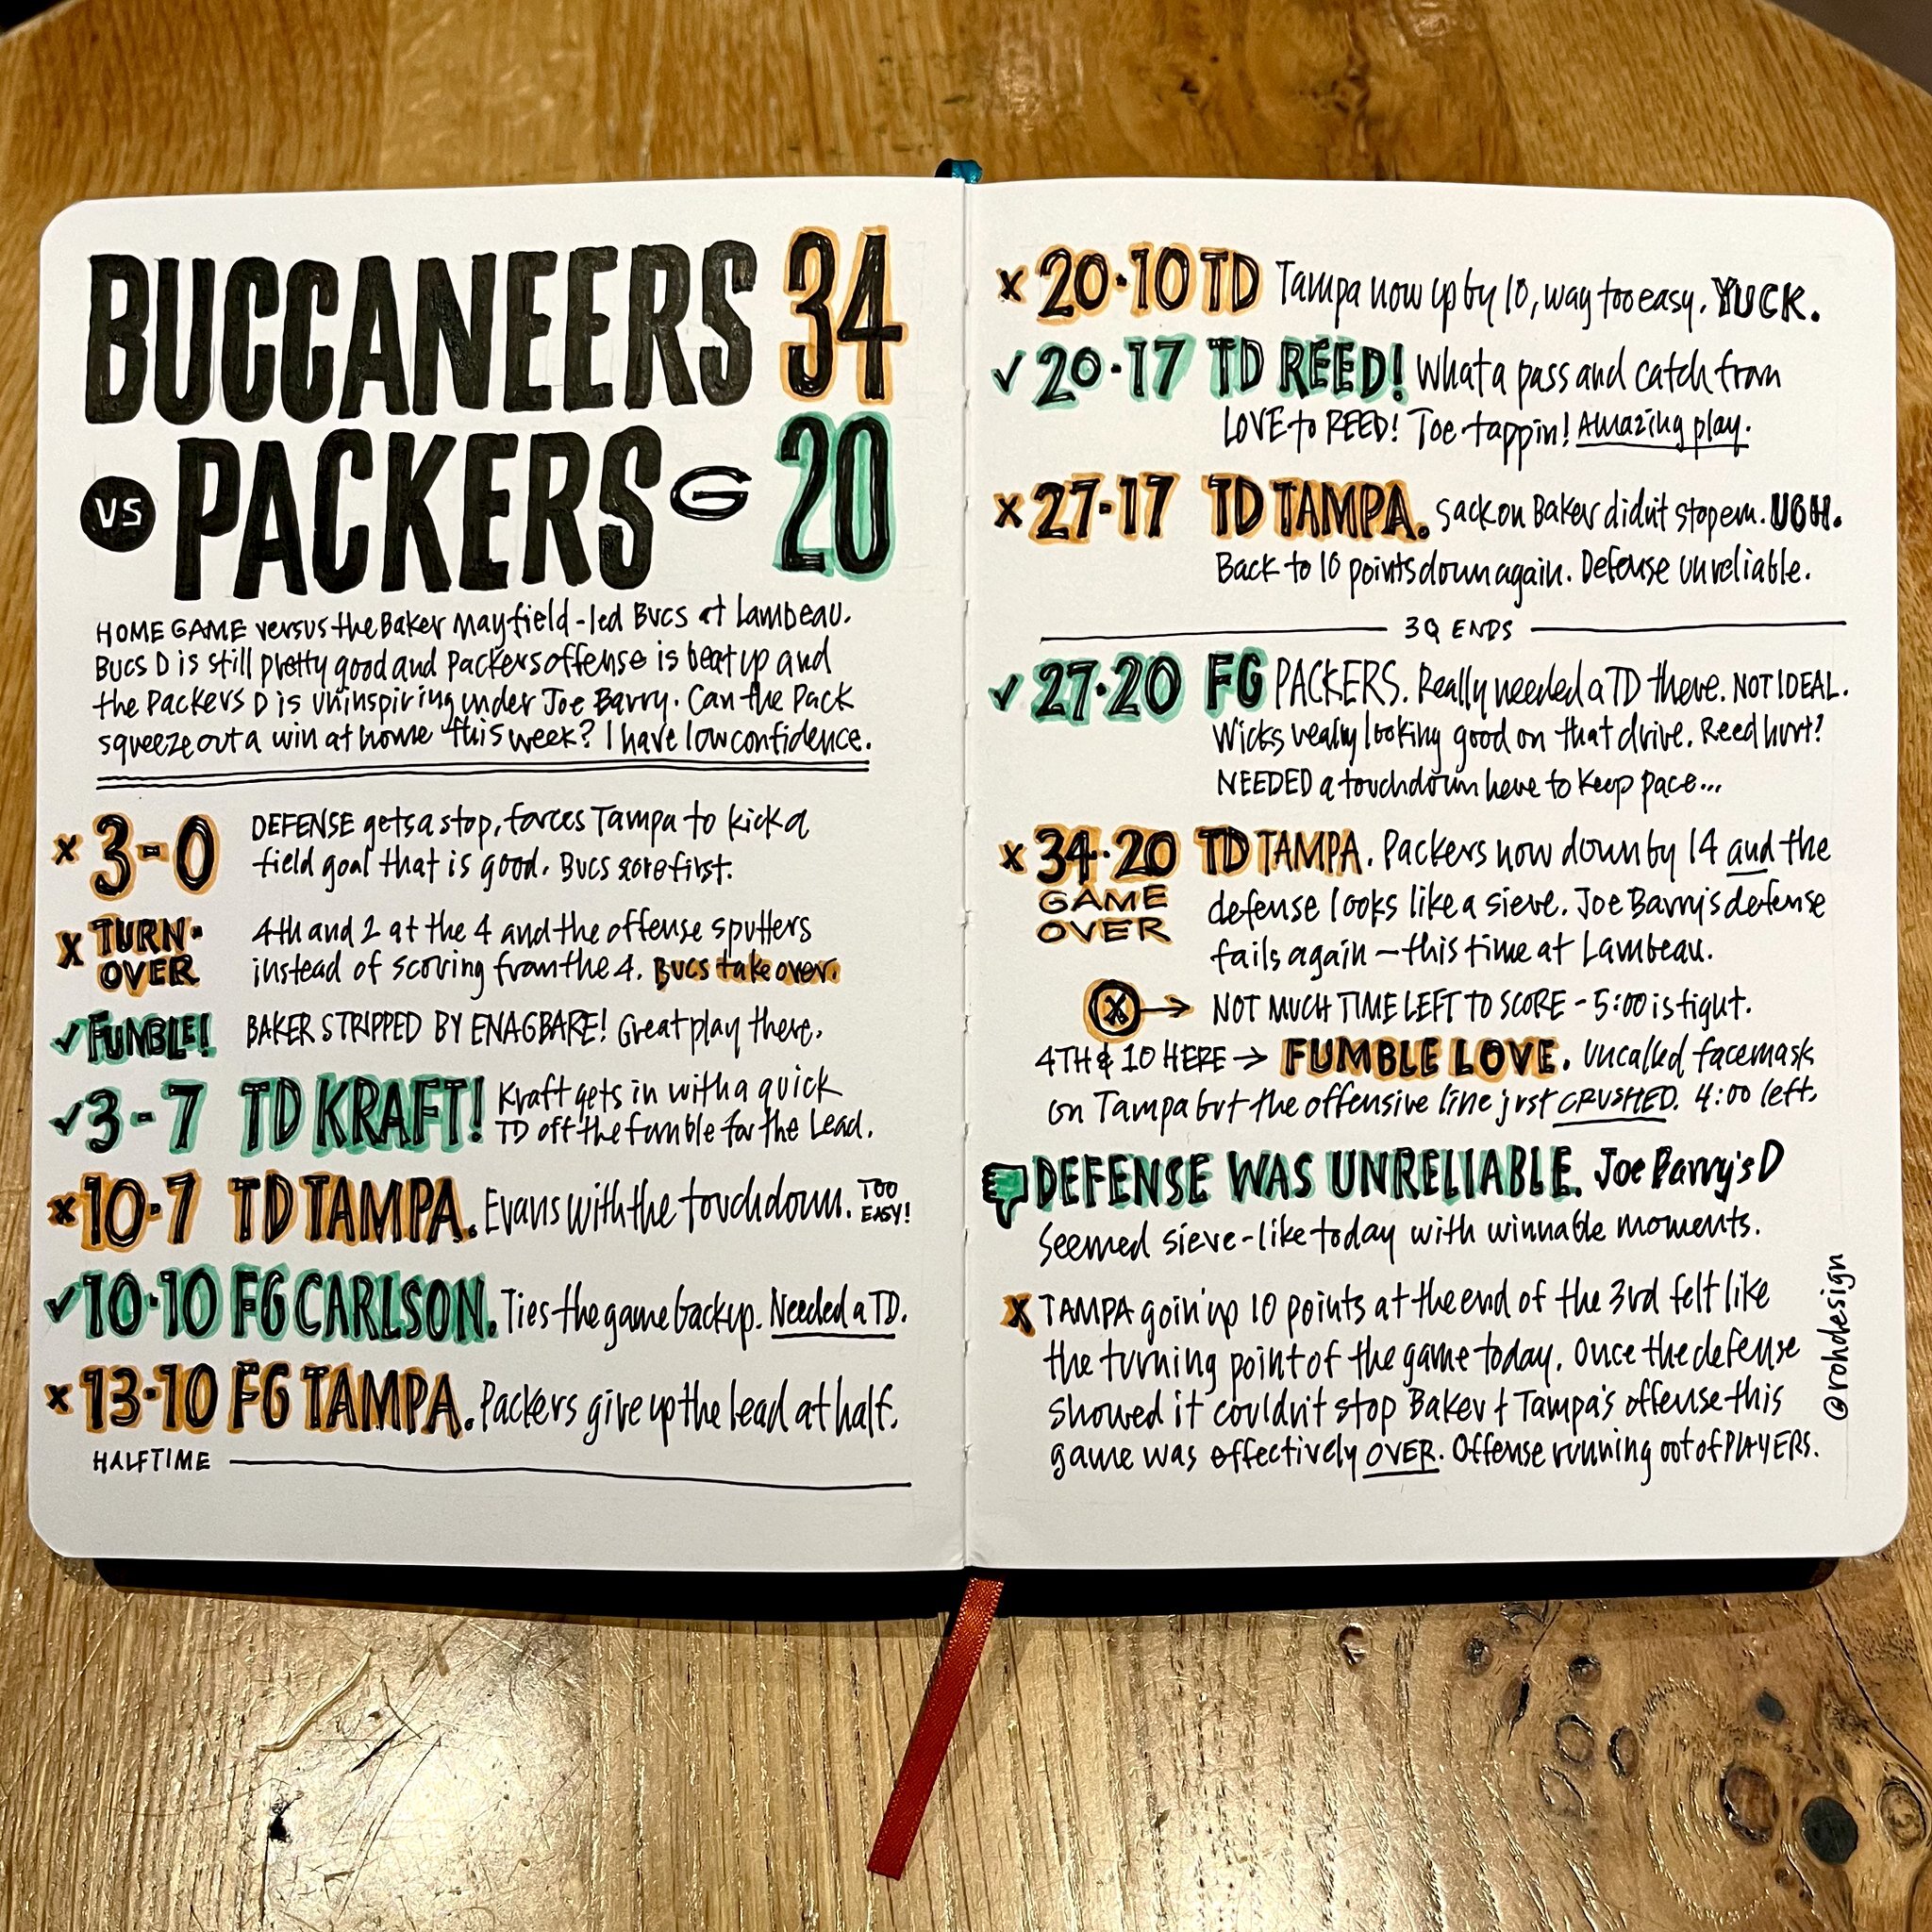 BUCCANEERS 34
VS PACKERS G 20
HOME GAME versus the Baker Mayfield-led Bucs at Lambeau.
Bucs D is still pretty good and Packers offense is beat up and
the Packers D is uninspiring under Joe Barry. Can the Pack
squeeze out a win at home this week? I have low confidence.
x 3-0 DEFENSE gets a stop, forces Tampa to kick a
field goal that is good. Bucs score first.
x TURN- 4th and 2 at the 4 and the offense sputters
OVER instead of scoring from the 4. Bucs take over.
✓ FUMBLE! BAKER STRIPPED BY ENAGBARE! Great play there.
✓ 3-7 TD KRAFT! Kraft gets in with a quick
TD off the fumble for the Lead.
x 10-7 TD TAMPA. Evans with the touchdown. TOO
EASY!
✓ 10-10 FG CARLSON. Ties the game back up. Needed a TD.
x 13-10 FG TAMPA. Packers give up the lead at half.
HALFTIME
x 20-10 TD Tampa now up by 10, way too easy. YUCK.
✓ 20-17 TD REED! What a pass and catch from
LOVE to REED! Toe tappin! Amazing play.
x 27-17 TD TAMPA. Sack on Baker didn't stop em. UGH.
Back to 10 points down again. Defense unreliable.
3Q ENDS
✓ 27-20 FG PACKERS. Really needed a TD there. NOT IDEAL.
Wicks really looking good on that drive. Reed hurt?
NEEDED a touchdown here to keep pace...
x 34-20 TD TAMPA. Packers now down by 14 and the
GAME defense looks like a sieve. Joe Barry's defense
OVER fails again — this time at Lambeau.
x → NOT MUCH TIME LEFT TO SCORE - 5:00 is tight.
4TH & 10 HERE → FUMBLE LOVE. Uncalled facemask
on Tampa but the offensive line just CRUSHED. 4:00 left.
DEFENSE WAS UNRELIABLE. Joe Barry's D
Seemed sieve-like today with winnable moments.
x TAMPA goin' up 10 points at the end of the 3rd felt like
the turning point of the game today. Once the defense
showed it couldn't stop Baker + Tampa's offense this
game was effectively OVER. Offense running out of PLAYERS.
@rohdesign